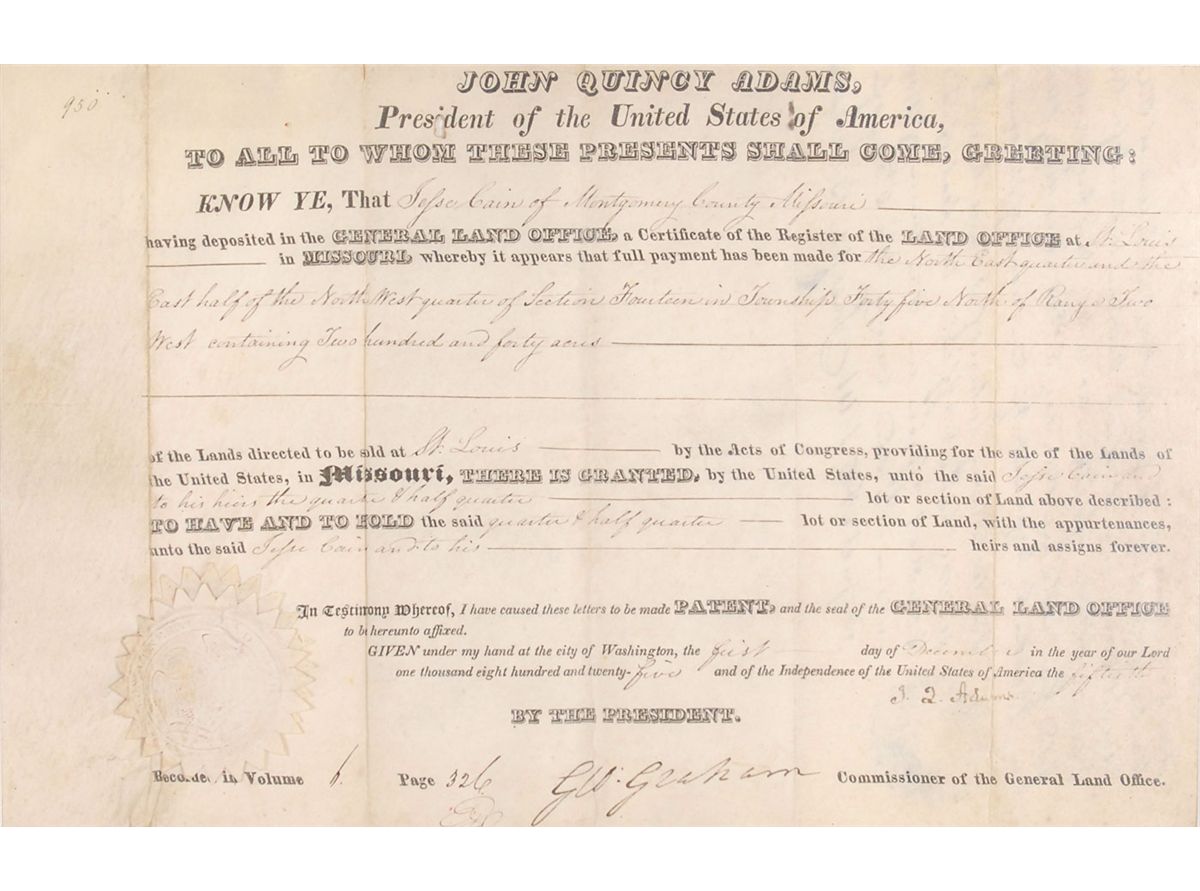 950
JOHN QUINCY ADAMS,
President of the United States of America,
TO ALL TO WHOM THESE PRESENTS SHALL COME, GREETING:
KNOW YE, That Jesse Cain of Montgomery County Missouri
having deposited in the GENERAL LAND OFFICE, a Certificate of the Register of the LAND OFFICE at St. Louis
in MISSOURI, whereby it appears that full payment has been made for the North East quarter and the
East half of the North West quarter of Section Fourteen in Township Forty five North of Range Two
West containing Two hundred and forty acres
of the Lands directed to be sold at St. Louis by the Acts of Congress, providing for the sale of the Lands of
the United States, in Missouri, THERE IS GRANTED, by the United States, unto the said Jesse Cain and
to his heirs the quarter & half quarter lot or section of Land above described:
TO HAVE AND TO HOLD the said quarter & half quarter lot or section of Land, with the appurtenances,
unto the said Jesse Cain and to his heirs and assigns forever.
In Testimony Whereof, I have caused these letters to be made PATENT, and the seal of the GENERAL LAND OFFICE
to be hereunto affixed.
GIVEN under my hand at the city of Washington, the first day of December in the year of our Lord
one thousand eight hundred and twenty-five and of the Independence of the United States of America the fiftieth
J. Q. Adams
BY THE PRESIDENT.
Recorded in Volume 6 Page 326 Geo: Graham Commissioner of the General Land Office.